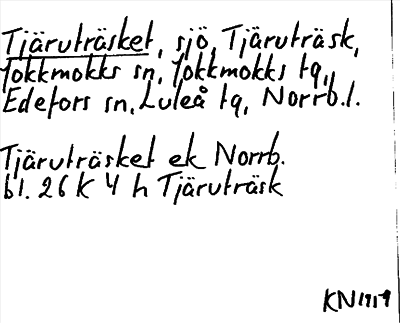 Tjäruträsket, sjö, Tjäruträsk,
Jokkmokks sn, Jokkmokks tg,
Edefors sn, Luleå tg, Norrb. l.
Tjäruträsket ek Norrb.
bl. 26 K 4 h Tjäruträsk